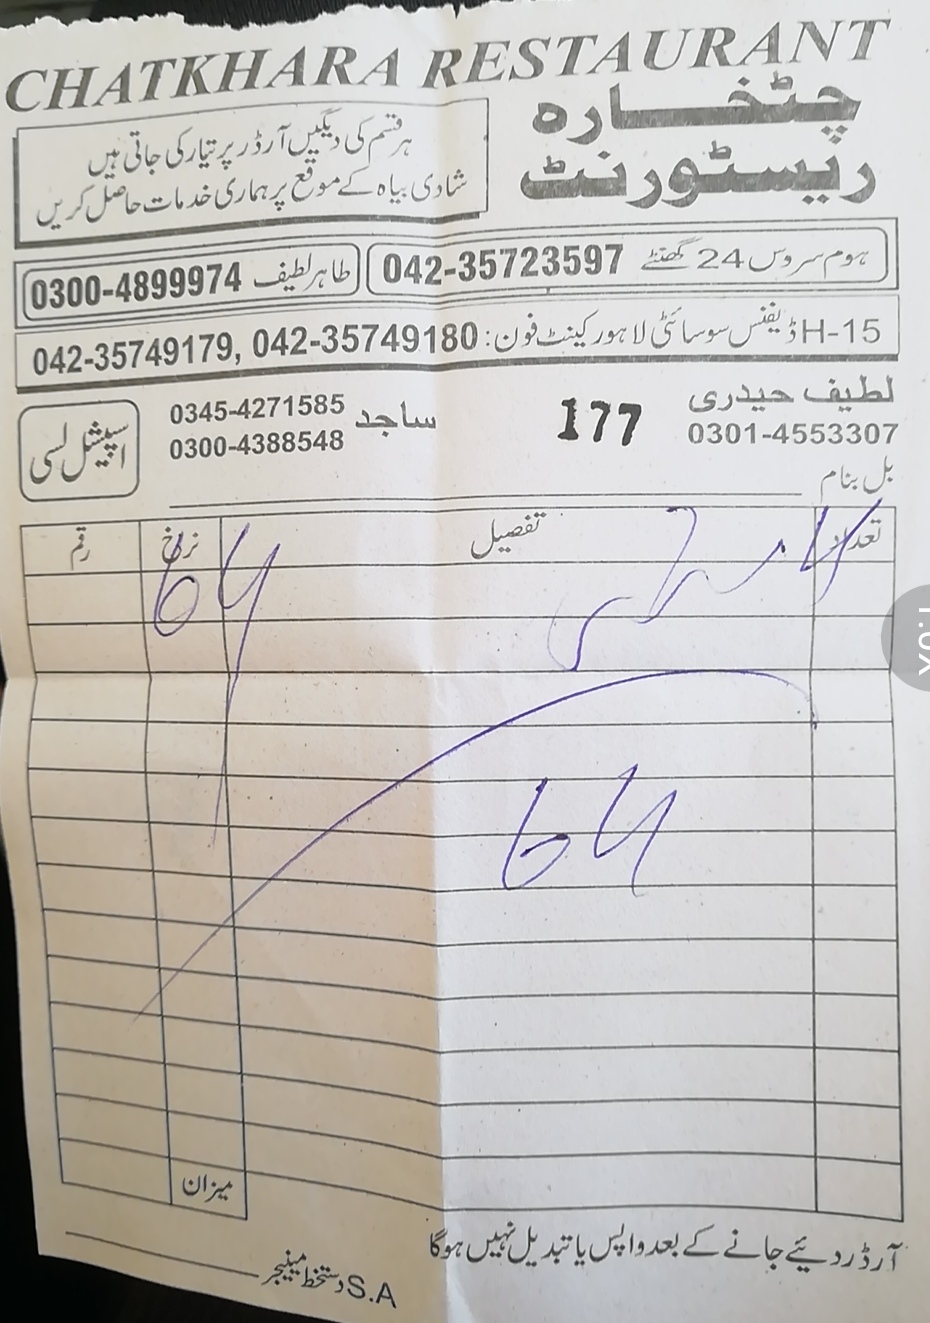 CHATKHARA RESTAURANT
چٹخارہ
ریسٹورنٹ
ہر قسم کی دیگیں آرڈر پر تیار کی جاتی ہیں
شادی بیاہ کے موقع پر ہماری خدمات حاصل کریں
ہوم سروس 24 گھنٹے 042-35723597
طاہر لطیف 0300-4899974
H-15 ڈیفنس سوسائٹی لاہور کینٹ فون: 042-35749179, 042-35749180
لطیف حیدری
0301-4553307
177
ساجد
0345-4271585
0300-4388548
اسپیشل لسی
بل بنام
تعداد تفصیل نرخ رقم
4 64
64
میزان
آرڈر دئیے جانے کے بعد واپس یا تبدیل نہیں ہوگا
S.A دستخط مینیجر